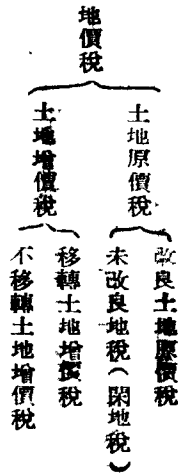 地價稅
土地原價稅
土地增價稅
改良土地原價稅
未改良地稅（閑地稅）
移轉土地增價稅
不移轉土地增價稅